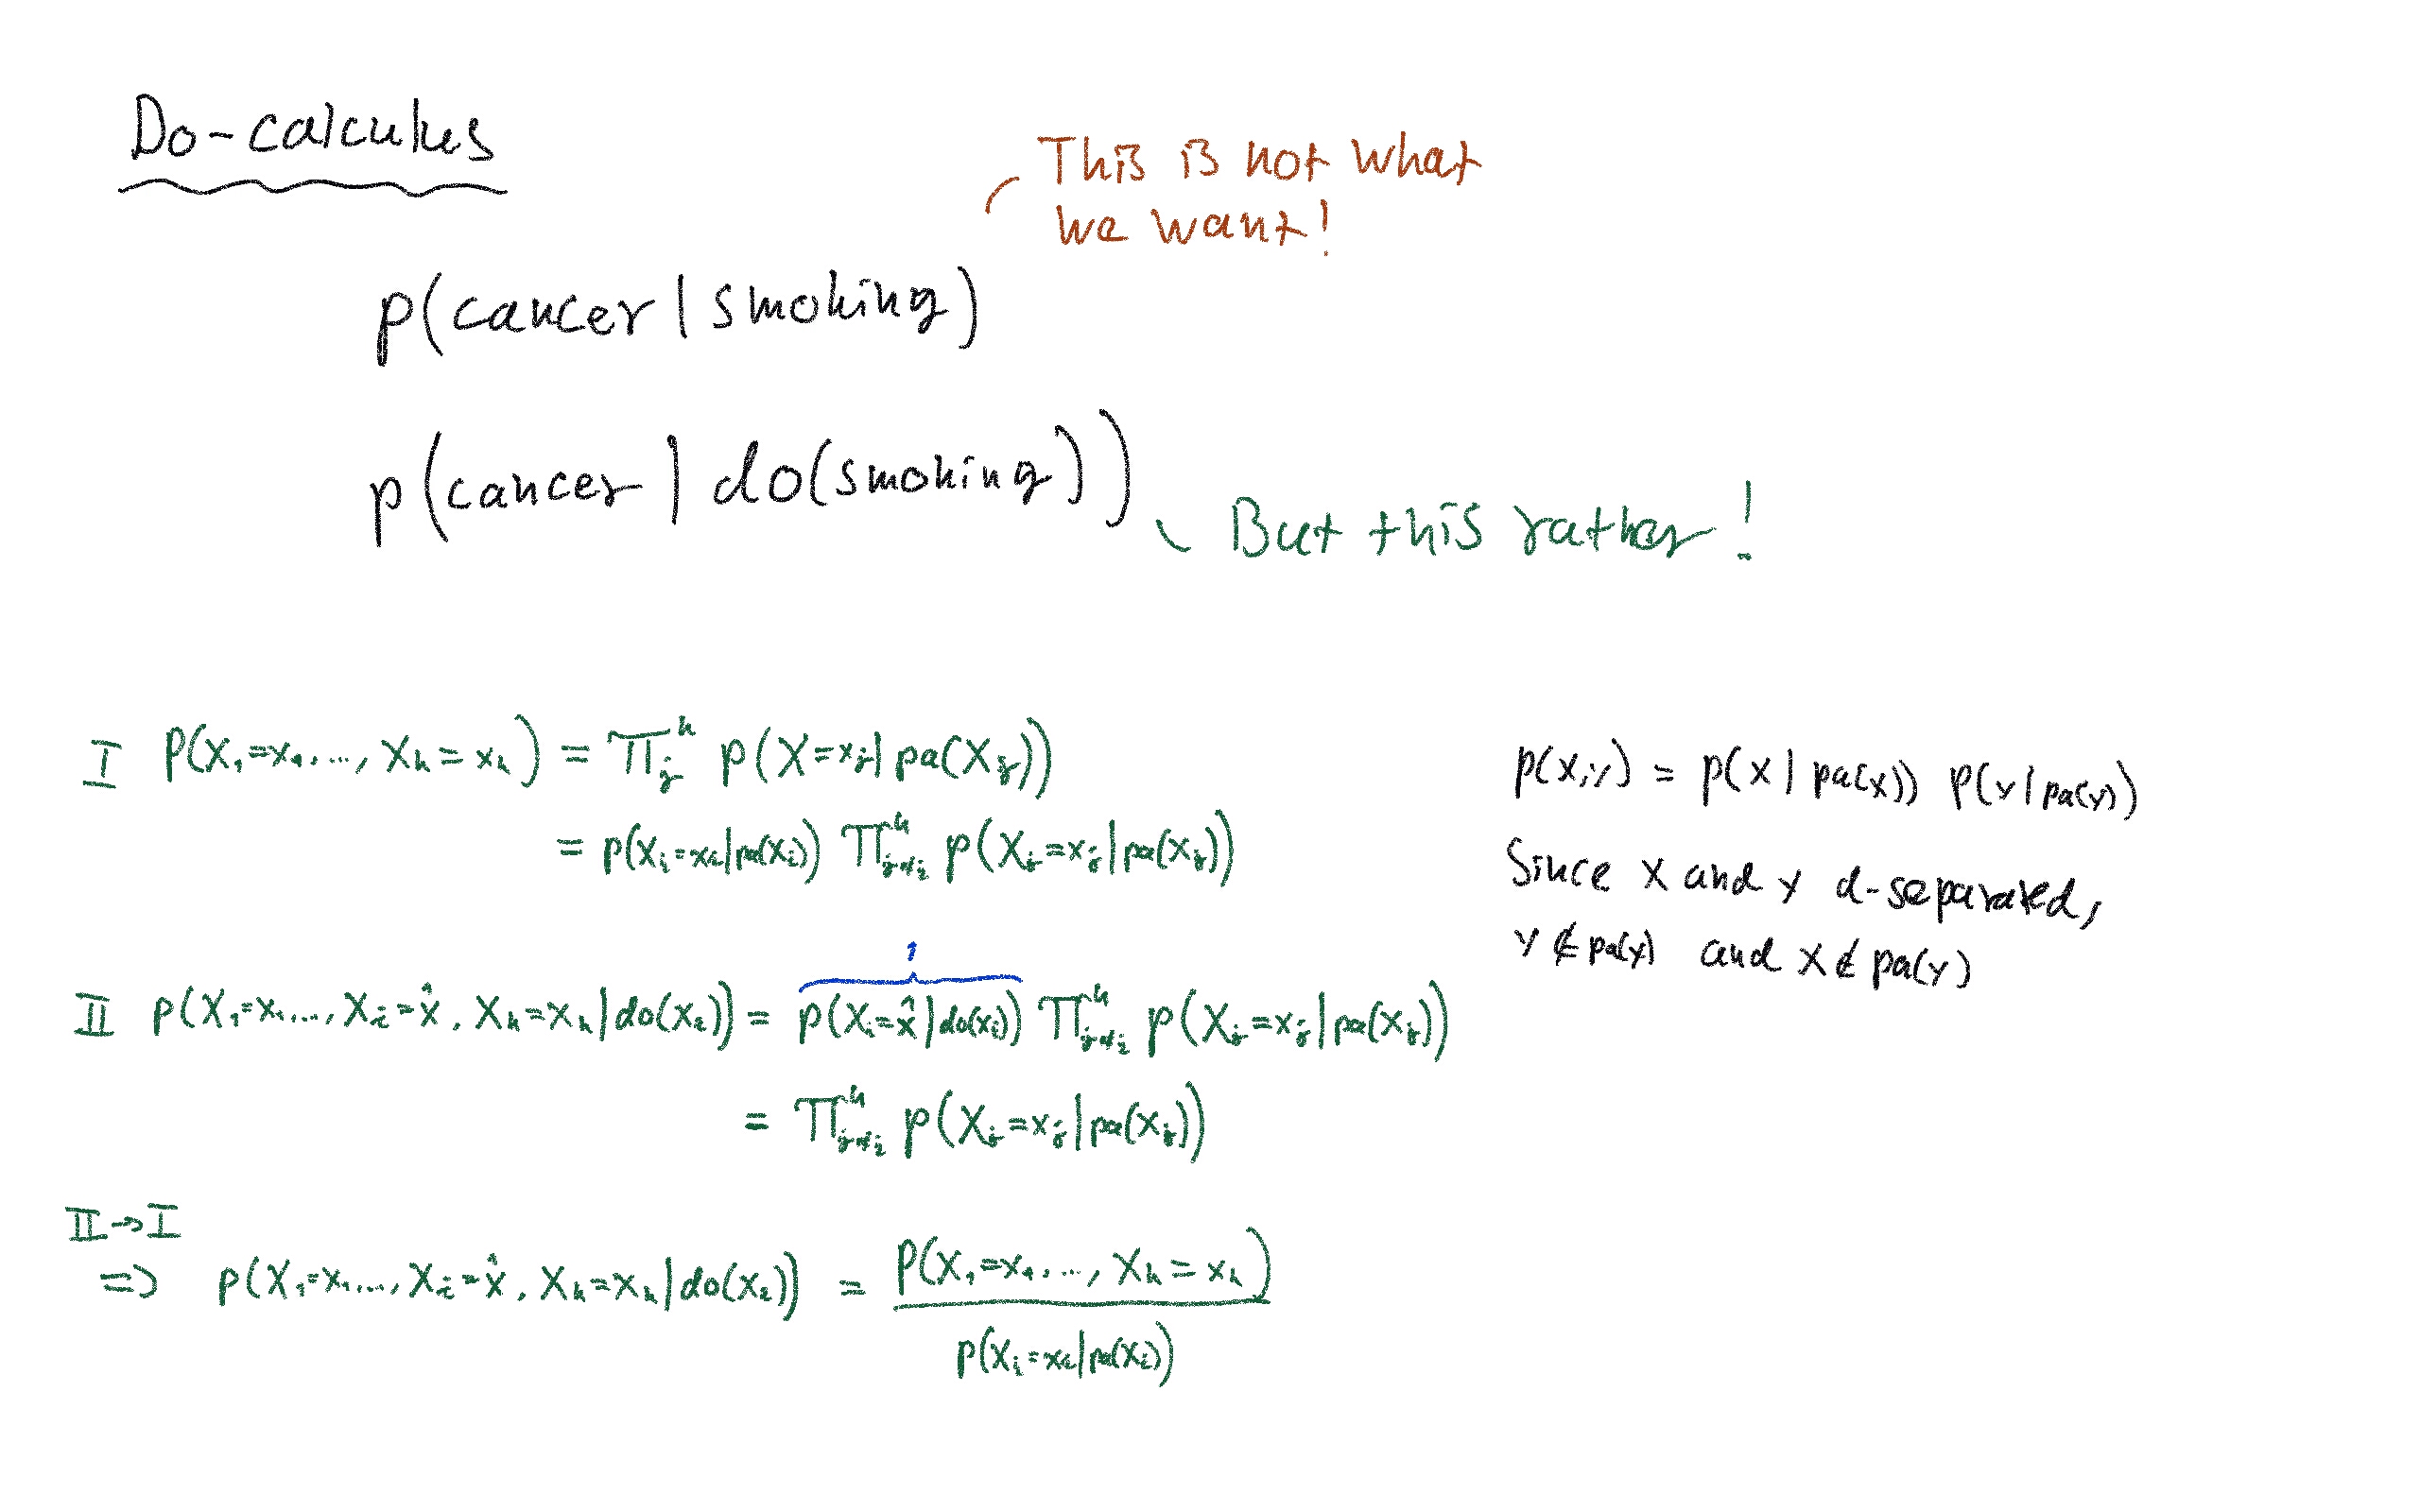 Do-calculus
This is not what
we want!
p(cancer | smoking)
p(cancer | do(smoking))
But this rather!
I P(X₁=x₁, ..., Xₙ=xₙ) = ∏ⱼⁿ p(X=xⱼ | pa(Xⱼ))
= p(Xᵢ=xᵢ | pa(Xᵢ)) ∏ⁿ_{j≠i} p(Xⱼ=xⱼ | pa(Xⱼ))
1
II p(X₁=x₁, ..., Xᵢ=x̂, Xₙ=xₙ | do(xᵢ)) = p(Xᵢ=x̂ | do(xᵢ)) ∏ⁿ_{j≠i} p(Xⱼ=xⱼ | pa(Xⱼ))
= ∏ⁿ_{j≠i} p(Xⱼ=xⱼ | pa(Xⱼ))
II → I
=> p(X₁=x₁, ..., Xᵢ=x̂, Xₙ=xₙ | do(xᵢ)) = P(X₁=x₁, ..., Xₙ=xₙ)
p(Xᵢ=xᵢ | pa(Xᵢ))
p(x,y) = p(x | pa(x)) p(y | pa(y))
Since x and y d-separated,
y ∉ pa(y) and x ∉ pa(y)